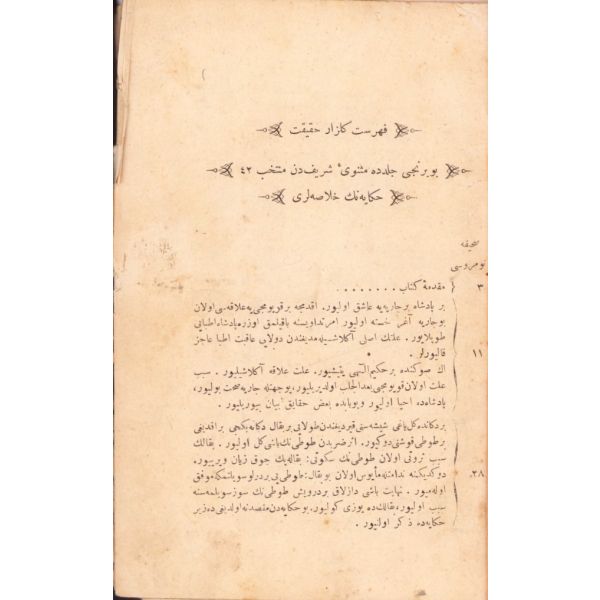 فهرست كلزار حقيقت
بو برنجی جلدده مثنویٔ شریفدن منتخب ٤٢
حكايه نك خلاصه لری
صحیفه
نومروسی
٣ مقدمهٔ كتاب . . . . . . . .
بر پادشاه بر جاریه یه عاشق اولیور. اقدمجه بر قویومجی یه علاقه سی اولان
بو جاریه آغر خسته اولیور امر تداویسنه باقیلمق اوزره پادشاه اطبایی
طوپلایور . علتك اصلی آكلاشیله مدیغندن دولایی عاقبت اطبا عاجز
١١ قالیورلر .
اك صوكنده بر حكیم الٓهی یتیشیور. علت علاقه آكلاشیلیور . سبب
علت اولان قویومجی بعد الجلب اولدیریلیور، بو جهتله جاریه صحت بولیور،
پادشاه ده احیا اولیور و بوبابده بعض حقایق بیان بیوریلیور.
بر دكانده كل یاغی شیشه سنی قیردیغندن طولایی بر بقال دكانه بكجی براقدیغی
بر طوطی قوشنی دوكیور. اثر ضربدن طوطی نك باشی كل اولیور . بقالك
سبب ثروتی اولان طوطی نك سكوتی: بقاله پك چوق زیان ویرییور.
٢٨ دوكدیكنه ندامتله مأیوس اولان بو بقال: طوطی یی بر درلو سویلتمكه موفق
اوله میور . نهایت باشی دازلاق بر درویش طوطی نك سوز سویلمه سنه
سبب اولیور، بقالك ده یوزی كولیور. بو حكایه دن مقصد نه اولدیغی ده زیر
حكایه ده ذكر اولنیور .